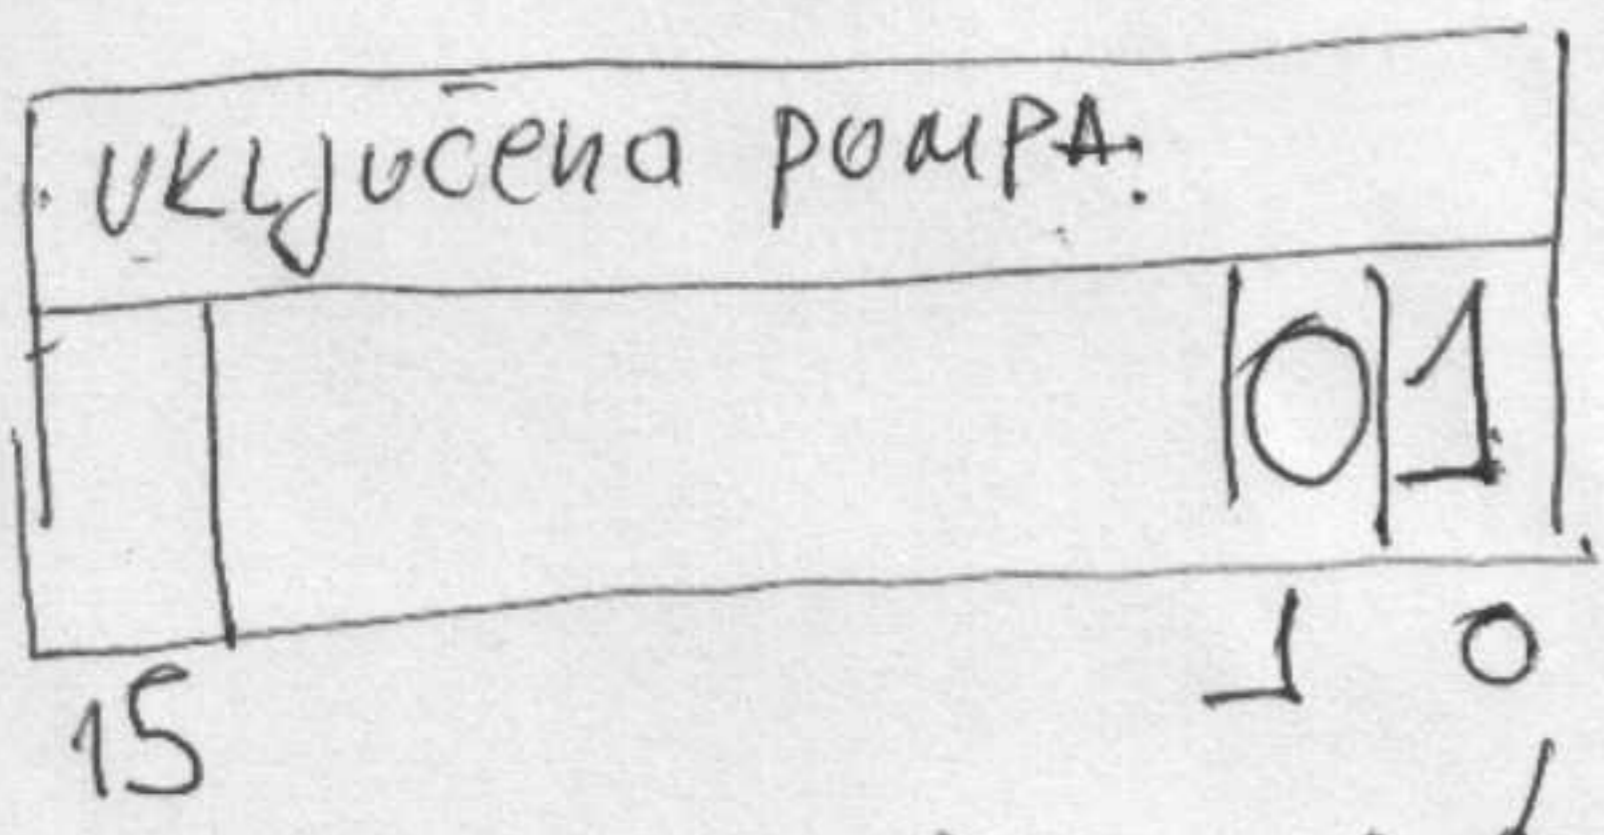 UKLjučena pompa.
0 1
15 1 0